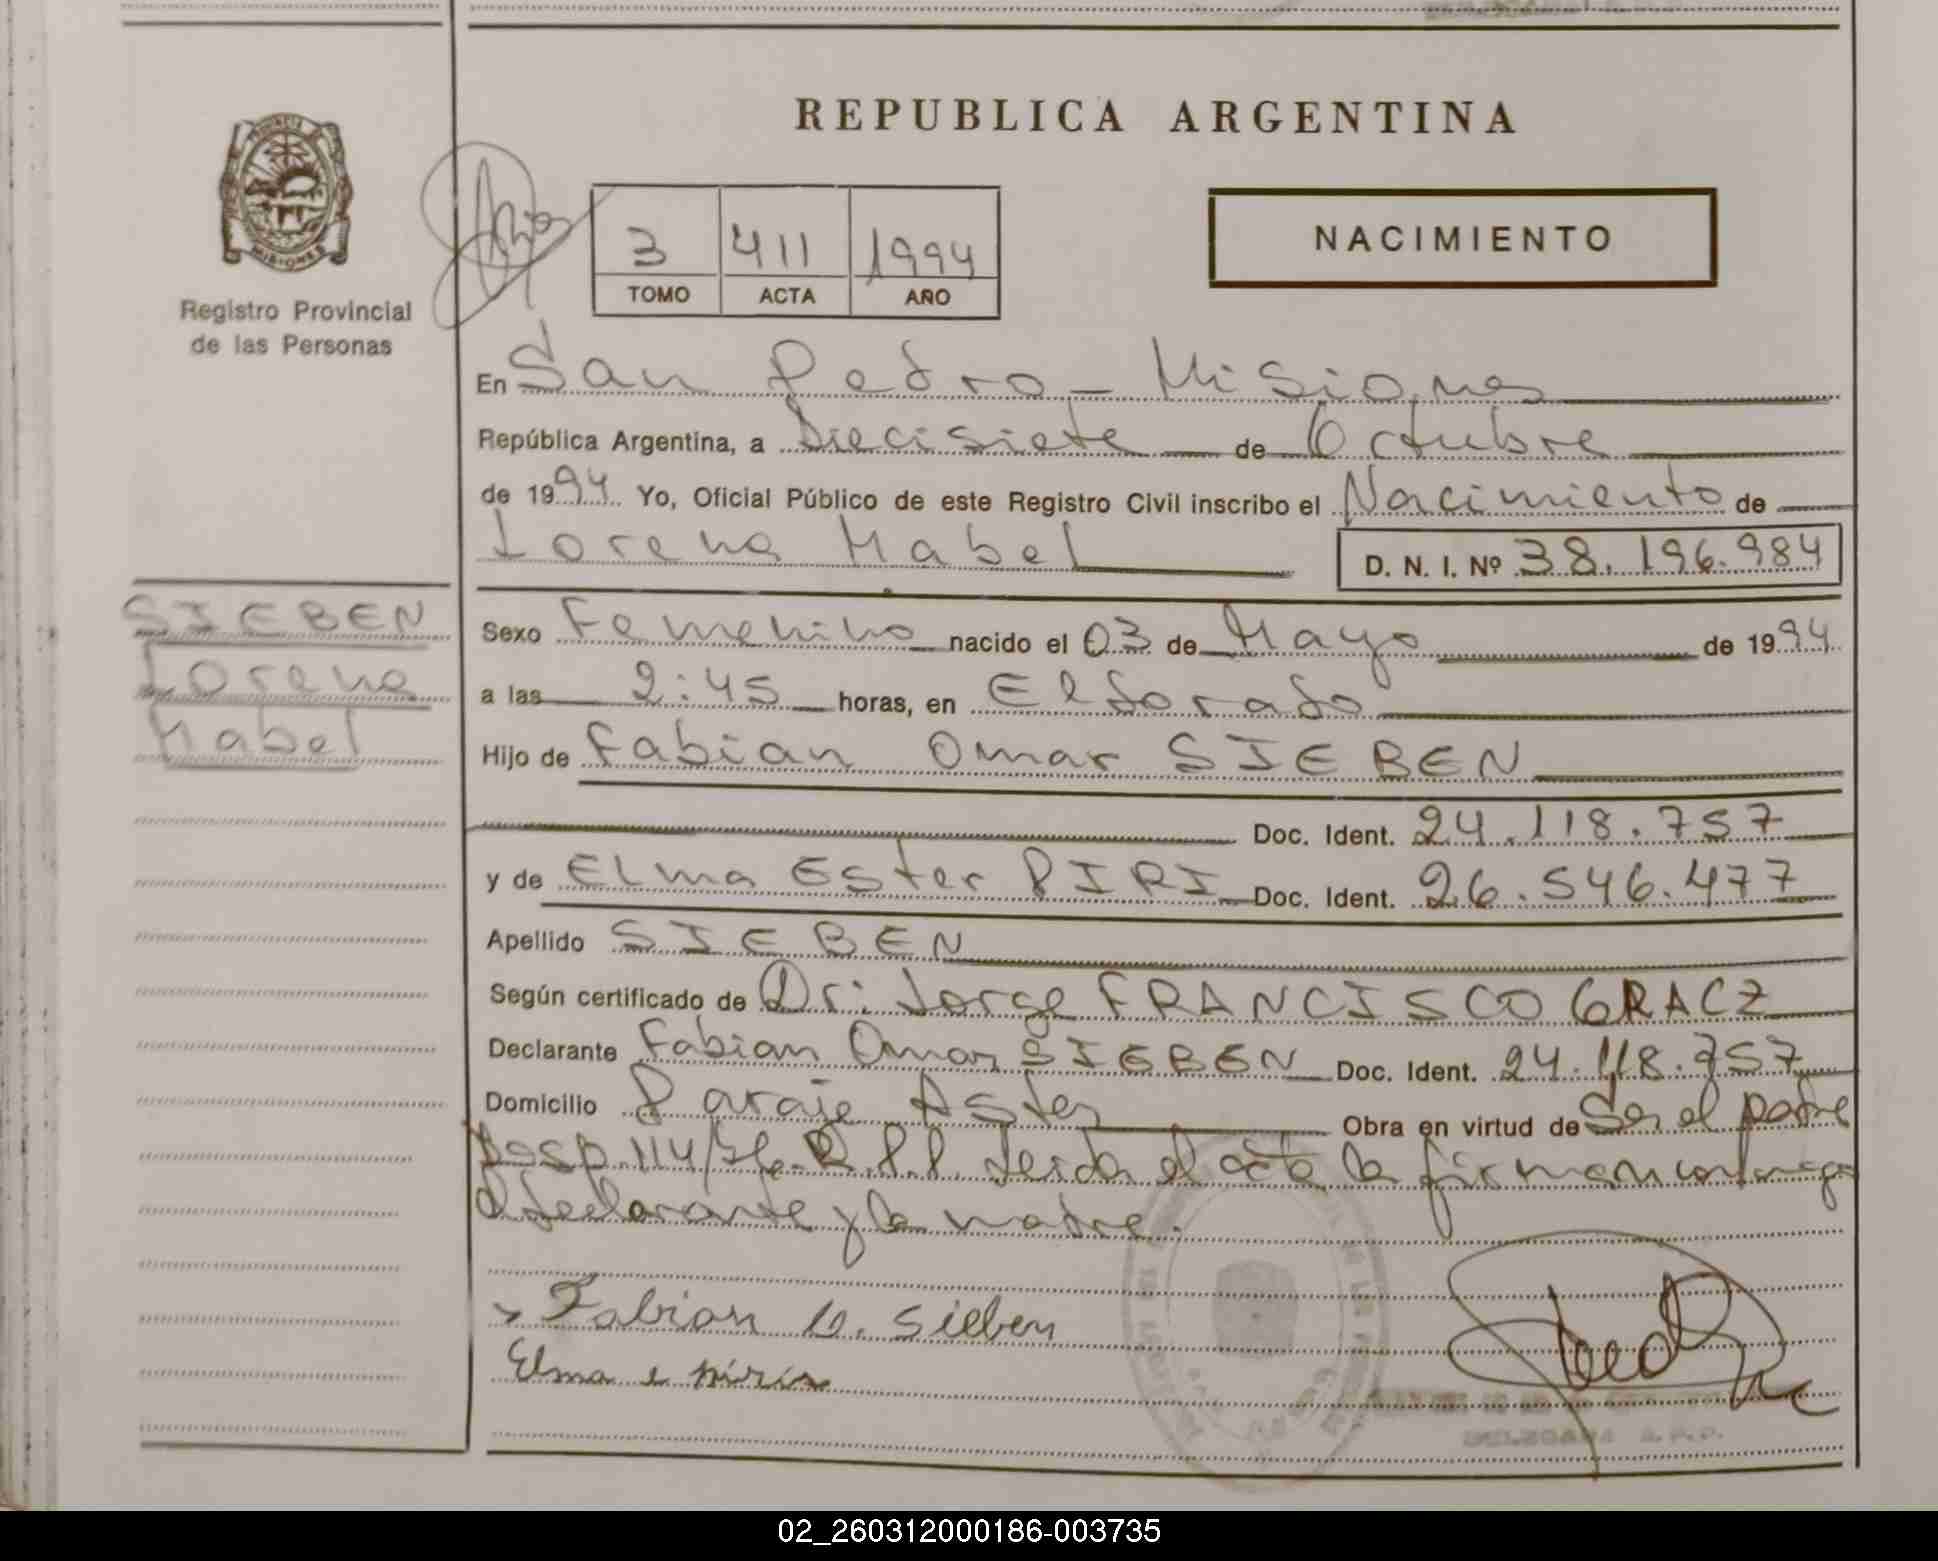 REPUBLICA ARGENTINA
PROVINCIA
MISIONES
Registro Provincial
de las Personas
3 411 1994
TOMO ACTA AÑO
NACIMIENTO
En San Pedro - Misiones
República Argentina, a Diecisiete de Octubre
de 1994 Yo, Oficial Público de este Registro Civil inscribo el Nacimiento de
Lorena Mabel D. N. I. Nº 38.196.984
SIEBEN
Lorena
Mabel
Sexo Femenino nacido el 03 de Mayo de 1994
a las 2:45 horas, en Eldorado
Hijo de Fabian Omar SIEBEN
Doc. Ident. 24.118.757
y de Elma Ester PIRI Doc. Ident. 26.546.477
Apellido SIEBEN
Según certificado de Dr: Jorge FRANCISCO GRACZ
Declarante Fabian Omar SIEBEN Doc. Ident. 24.118.757
Domicilio Paraje Obra en virtud de Ser el padre
Leida el acta la firman conmigo
el declarante y la madre.
Fabian O. Sieben
Elma e
DELEGADA R.P.P.
02_260312000186-003735